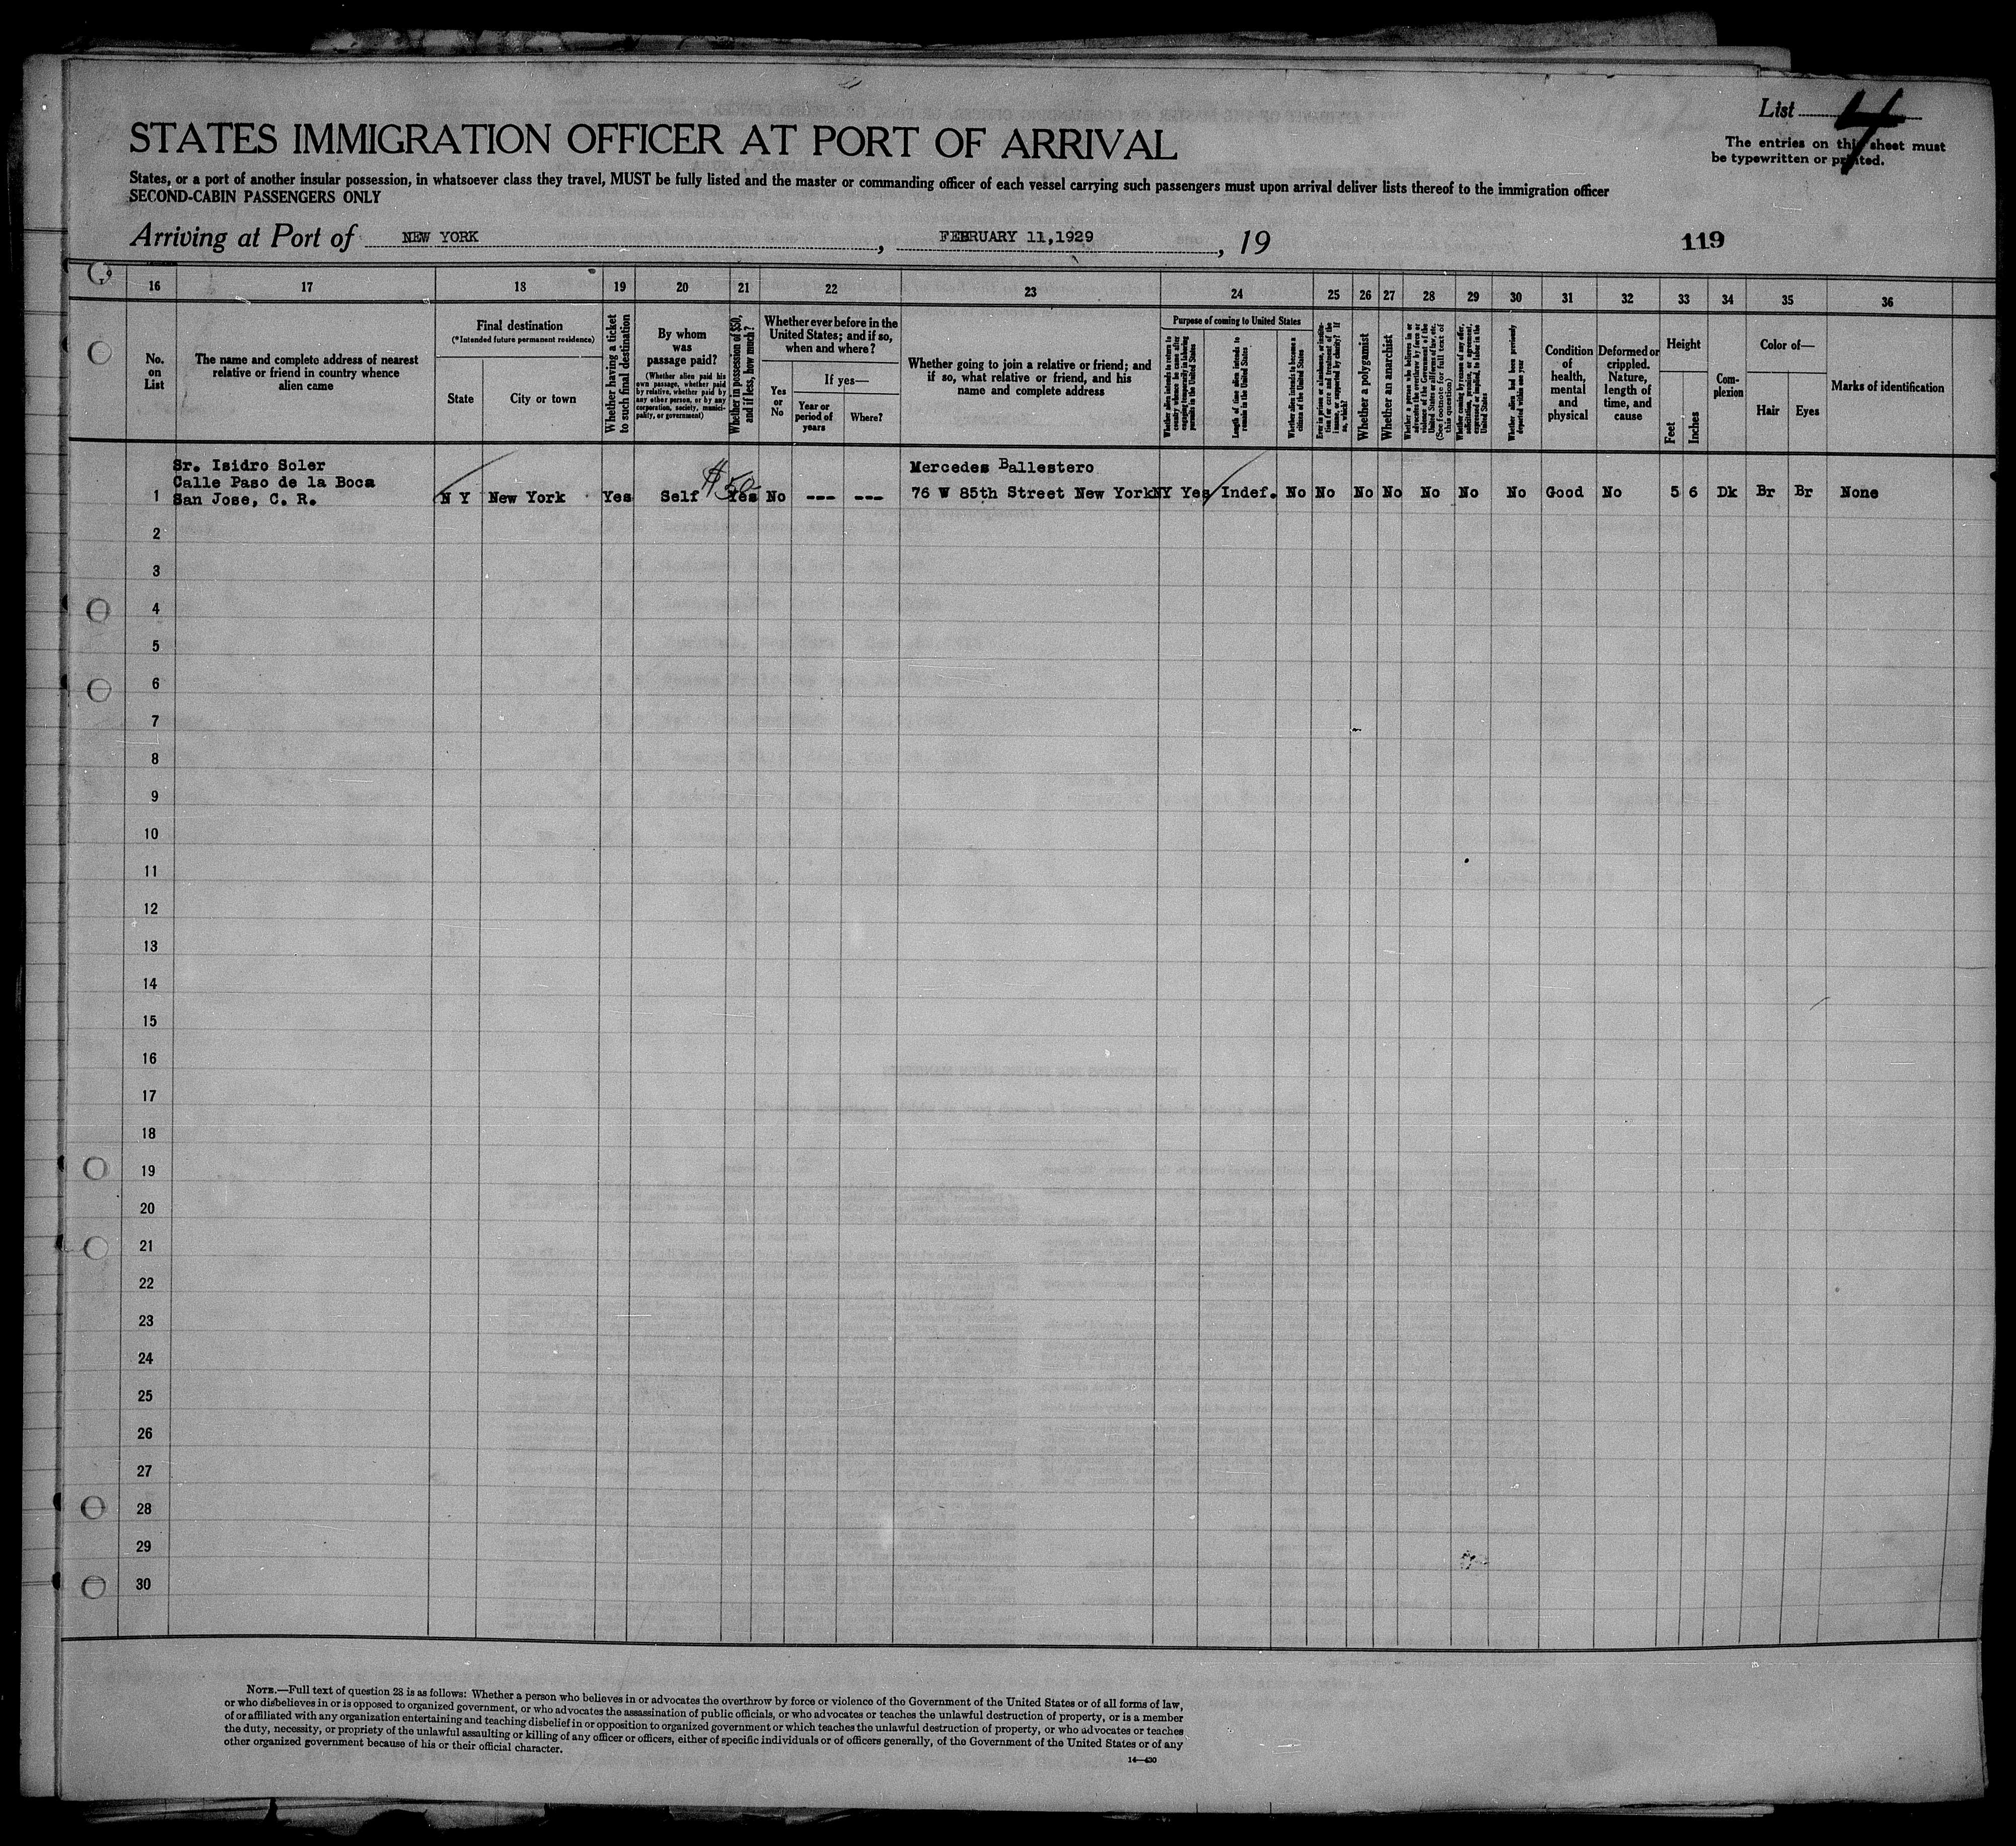 List 4
The entries on this sheet must
be typewritten or printed.
STATES IMMIGRATION OFFICER AT PORT OF ARRIVAL
States, or a port of another insular possession, in whatsoever class they travel, MUST be fully listed and the master or commanding officer of each vessel carrying such passengers must upon arrival deliver lists thereof to the immigration officer
SECOND-CABIN PASSENGERS ONLY
Arriving at Port of NEW YORK, FEBRUARY 11,1929, 19
119
16 17 18 19 20 21 22 23 24 25 26 27 28 29 30 31 32 33 34 35 36
No.
on
List
The name and complete address of nearest
relative or friend in country whence
alien came
Final destination
(*Intended future permanent residence)
State
City or town
Whether having a ticket
to such final destination
By whom
was
passage paid?
(Whether alien paid his
own passage, whether paid
by relative, whether paid by
any other person, or by any
corporation, society, munici-
pality, or government)
Whether in possession of $50,
and if less, how much?
Whether ever before in the
United States; and if so,
when and where?
Yes
or
No
If yes—
Year or
period of
years
Where?
Whether going to join a relative or friend; and
if so, what relative or friend, and his
name and complete address
Purpose of coming to United States
Whether alien intends to return to
country whence he came after
engaging temporarily in laboring
pursuits in the United States
Length of time alien intends to
remain in the United States
Whether alien intends to become a
citizen of the United States
Ever in prison or almshouse, or institu-
tion for care and treatment of the
insane, or supported by charity? If
so, which?
Whether a polygamist
Whether an anarchist
Whether a person who believes in or
advocates the overthrow by force or
violence of the Government of the
United States or all forms of law, etc.
(See footnote for full text of
this question)
Whether coming by reason of any offer,
solicitation, promise, or agreement,
expressed or implied, to labor in the
United States
Whether alien had been previously
deported within one year
Condition
of
health,
mental
and
physical
Deformed or
crippled.
Nature,
length of
time, and
cause
Height
Feet
Inches
Com-
plexion
Color of—
Hair
Eyes
Marks of identification
Sr. Isidro Soler
Calle Paso de la Boca
San Jose, C. R.
Mercedes Ballestero
$50
1 N Y New York Yes Self Yes No --- --- 76 W 85th Street New York NY Yes Indef. No No No No No No No Good No 5 6 Dk Br Br None
2
3
4
5
6
7
8
9
10
11
12
13
14
15
16
17
18
19
20
21
22
23
24
25
26
27
28
29
30
NOTE.—Full text of question 28 is as follows: Whether a person who believes in or advocates the overthrow by force or violence of the Government of the United States or of all forms of law,
or who disbelieves in or is opposed to organized government, or who advocates the assassination of public officials, or who advocates or teaches the unlawful destruction of property, or is a member
of or affiliated with any organization entertaining and teaching disbelief in or opposition to organized government or which teaches the unlawful destruction of property, or who advocates or teaches
the duty, necessity, or propriety of the unlawful assaulting or killing of any officer or officers, either of specific individuals or of officers generally, of the Government of the United States or of any
other organized government because of his or their official character.
14—430